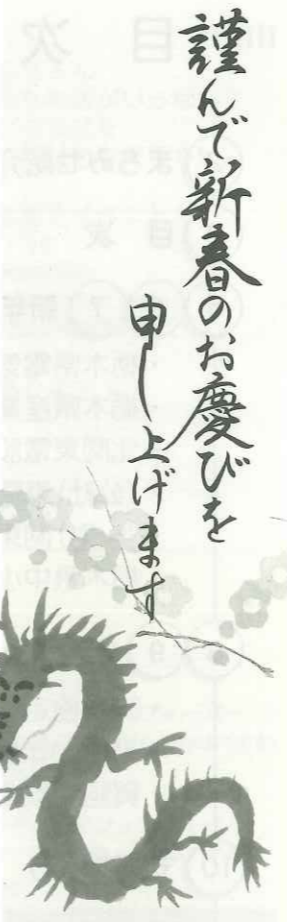 謹んで新春のお慶びを
申し上げます